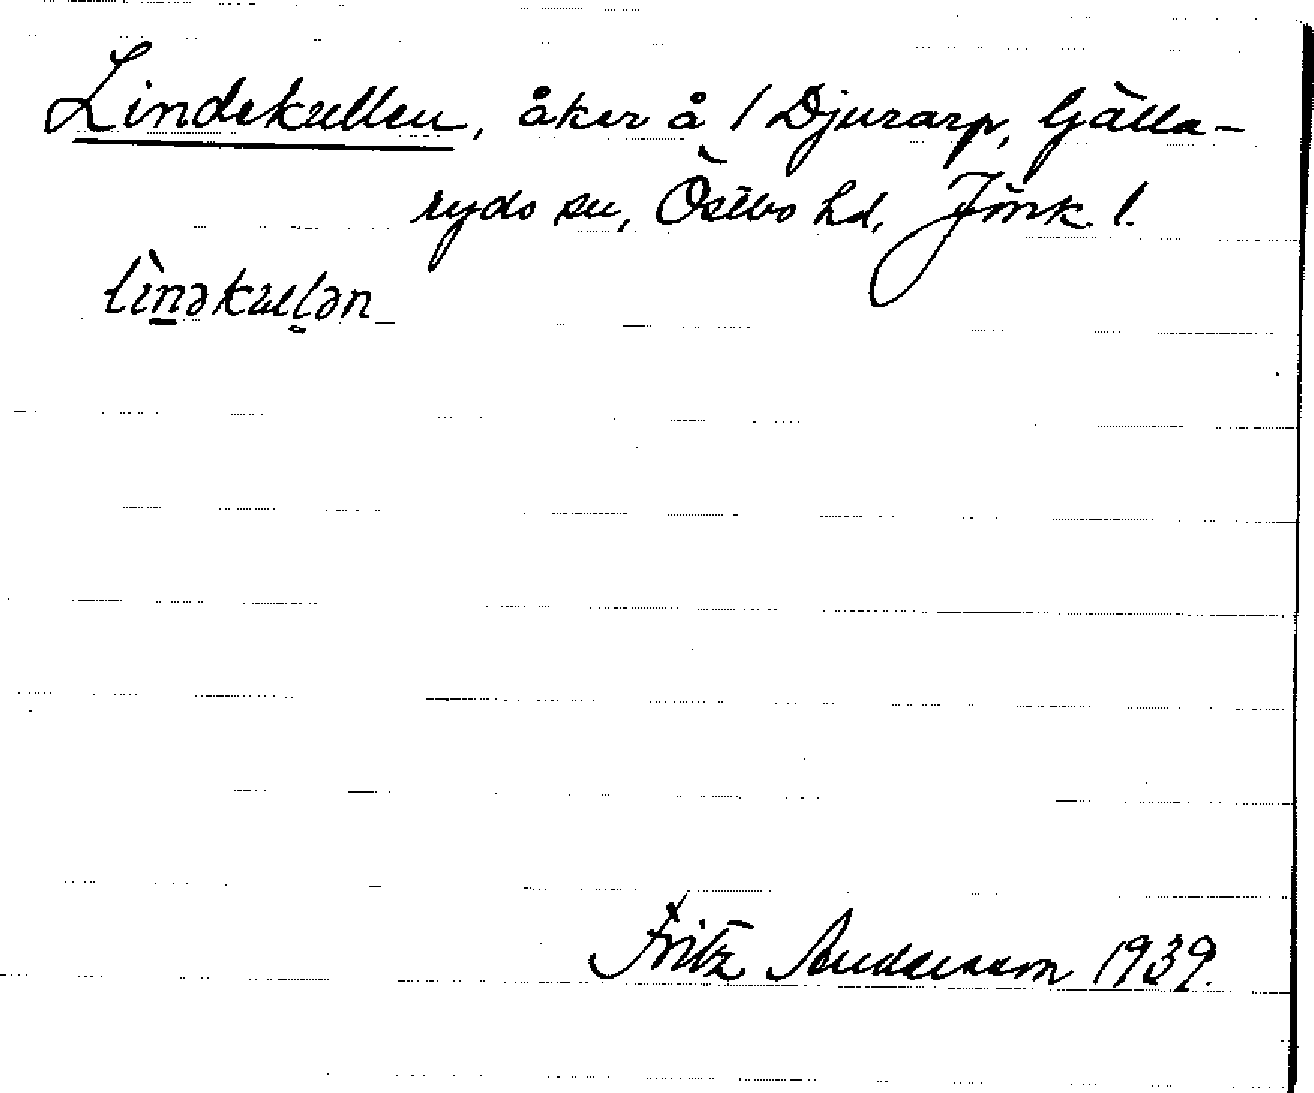 Lindekullen, åker å / Djurarp, Gälla-
ryds sn, Östbo hd, Jönk. l.
lìnəkuḷən
Fritz Andersson 1939.